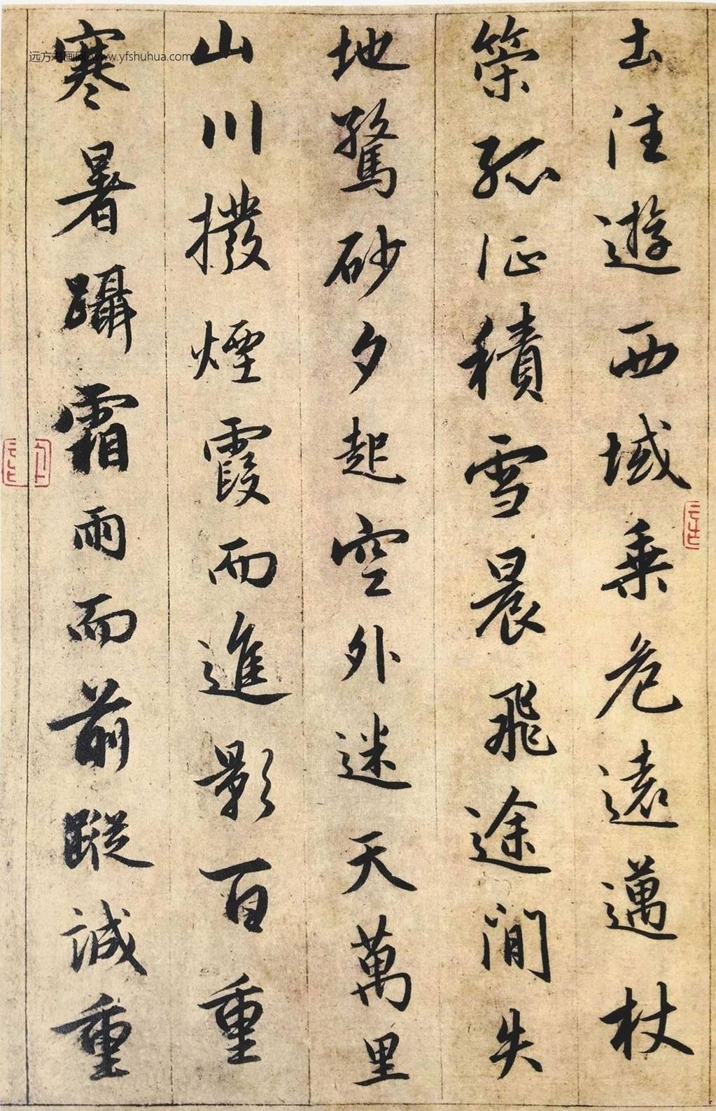 土往遊西域乗危遠邁杖
策孤征積雪晨飛途間失
地驚砂夕起空外迷天萬里
山川撥煙霞而進影百重
寒暑躡霜雨而前蹤誠重
远方 www.yfshuhua.com